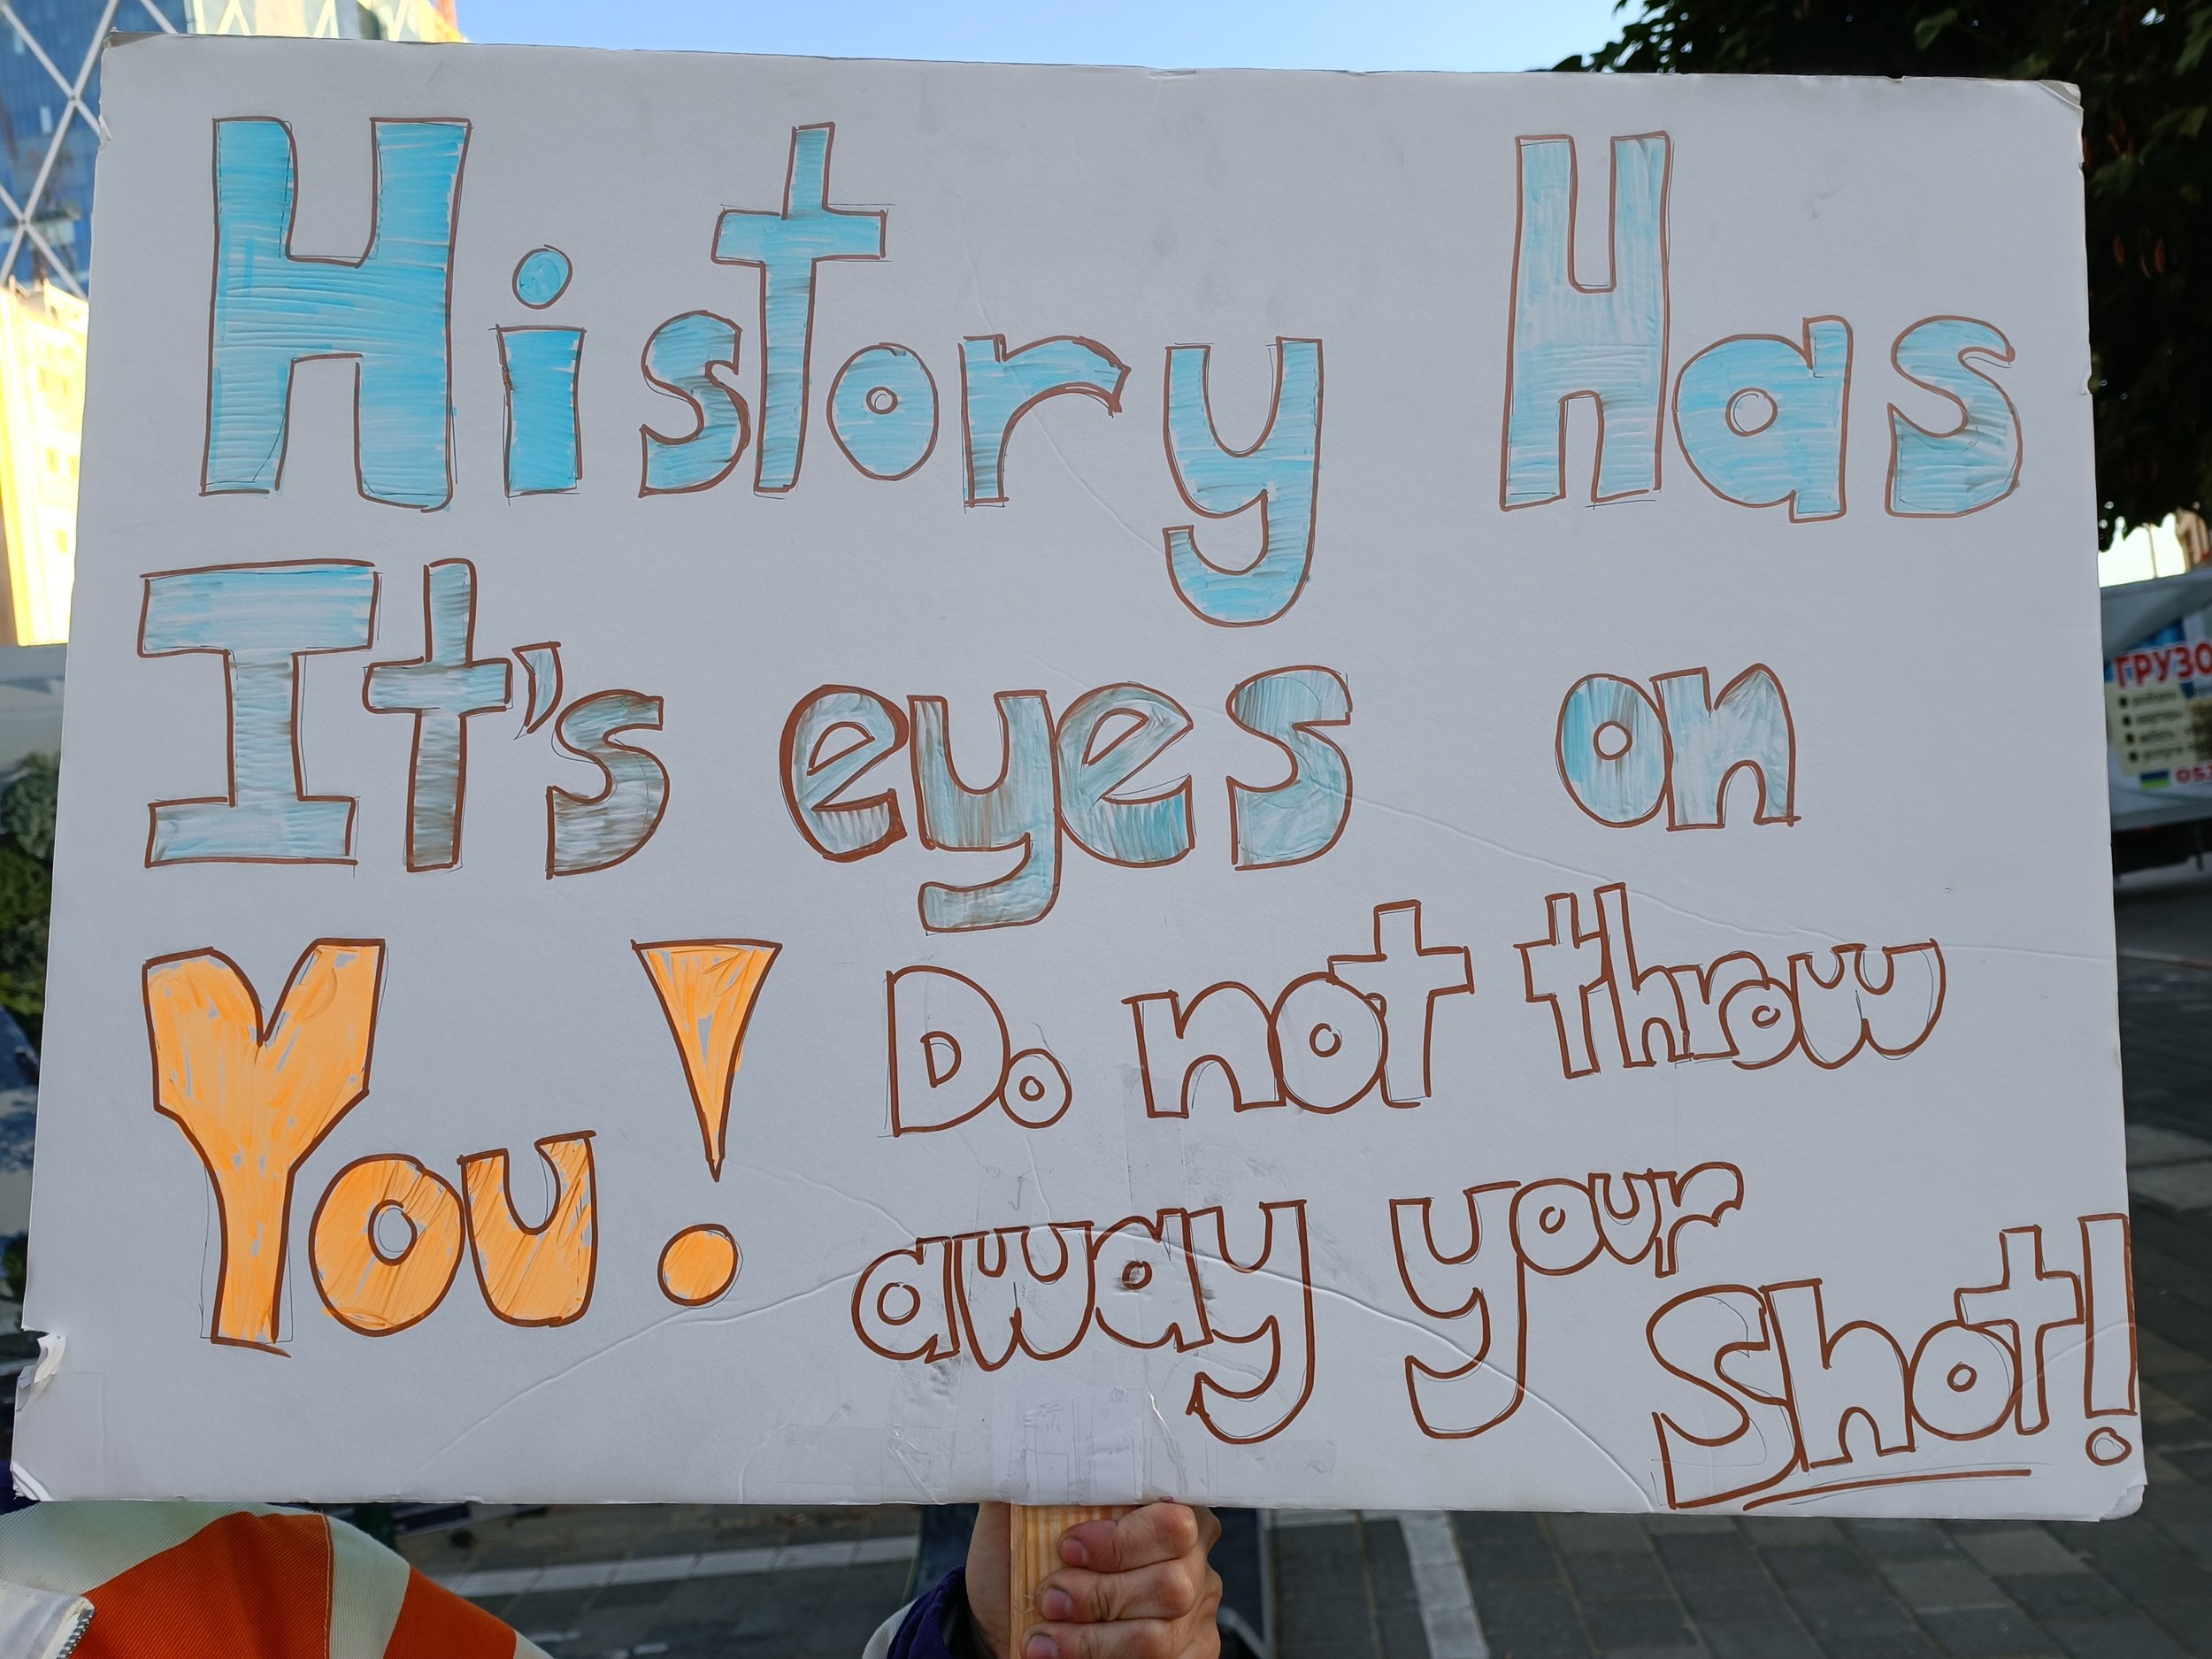 History Has
It's eyes on
You! Do not throw
away your
Shot!
ГРУЗО